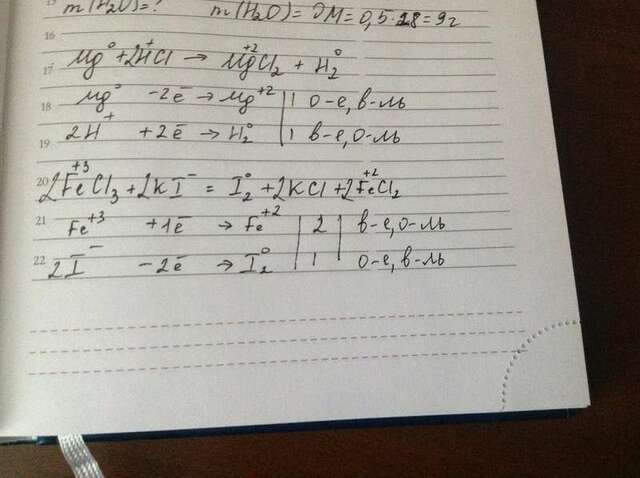 15 m(H₂O)=? m(H₂O)=ϑM=0,5·18=9г
16
17 Mg⁰+2H⁺Cl → Mg⁺²Cl₂ + H₂⁰
18 Mg⁰ -2ē → Mg⁺² | 1 | о-е, в-ль
19 2H⁺ +2ē → H₂⁰ | 1 | в-е, о-ль
20 2Fe⁺³Cl₃+2KI⁻ = I₂⁰+2KCl+2Fe⁺²Cl₂
21 Fe⁺³ +1ē → Fe⁺² | 2 | в-е, о-ль
22 2I⁻ -2ē → I₂⁰ | 1 | о-е, в-ль